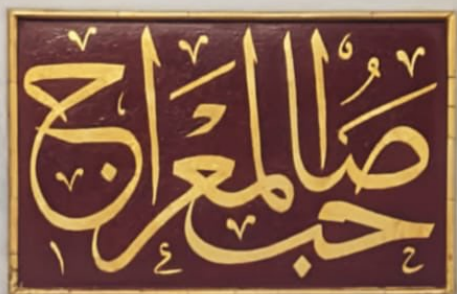 صاحب المعراج